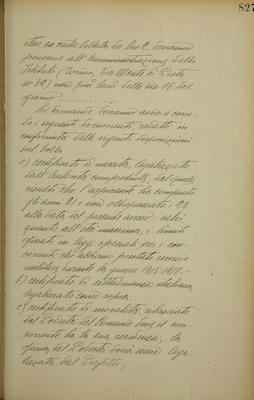 827
stese su carta bollata da Lire 2, dovranno
pervenire all'Amministrazione dello
Istituto (Torino, Via Monte di Pietà
n° 32) non più tardi delle ore 18 del
giorno
Le domande dovranno avere a corre-
do i seguenti documenti, redatti in
conformità delle vigenti disposizioni
sul bollo:
a) certificato di nascita, legalizzato
dall'Autorità competente, dal quale
risulti che l'aspirante ha compiuto
gli anni 21 e non oltrepassato i 28
alla data del presente avviso salvi
quanto all'età massima, i limiti
fissati in leggi speciali per i con-
correnti che abbiano prestato servizio
militare durante la guerra 1915-1918.-
b) certificato di cittadinanza italiana,
legalizzato come sopra.
c) certificato di moralità, rilasciato
dal Podestà del Comune dove il con-
corrente ha la sua residenza, la
firma del Podestà dovrà essere lega-
lizzata dal Prefetto,